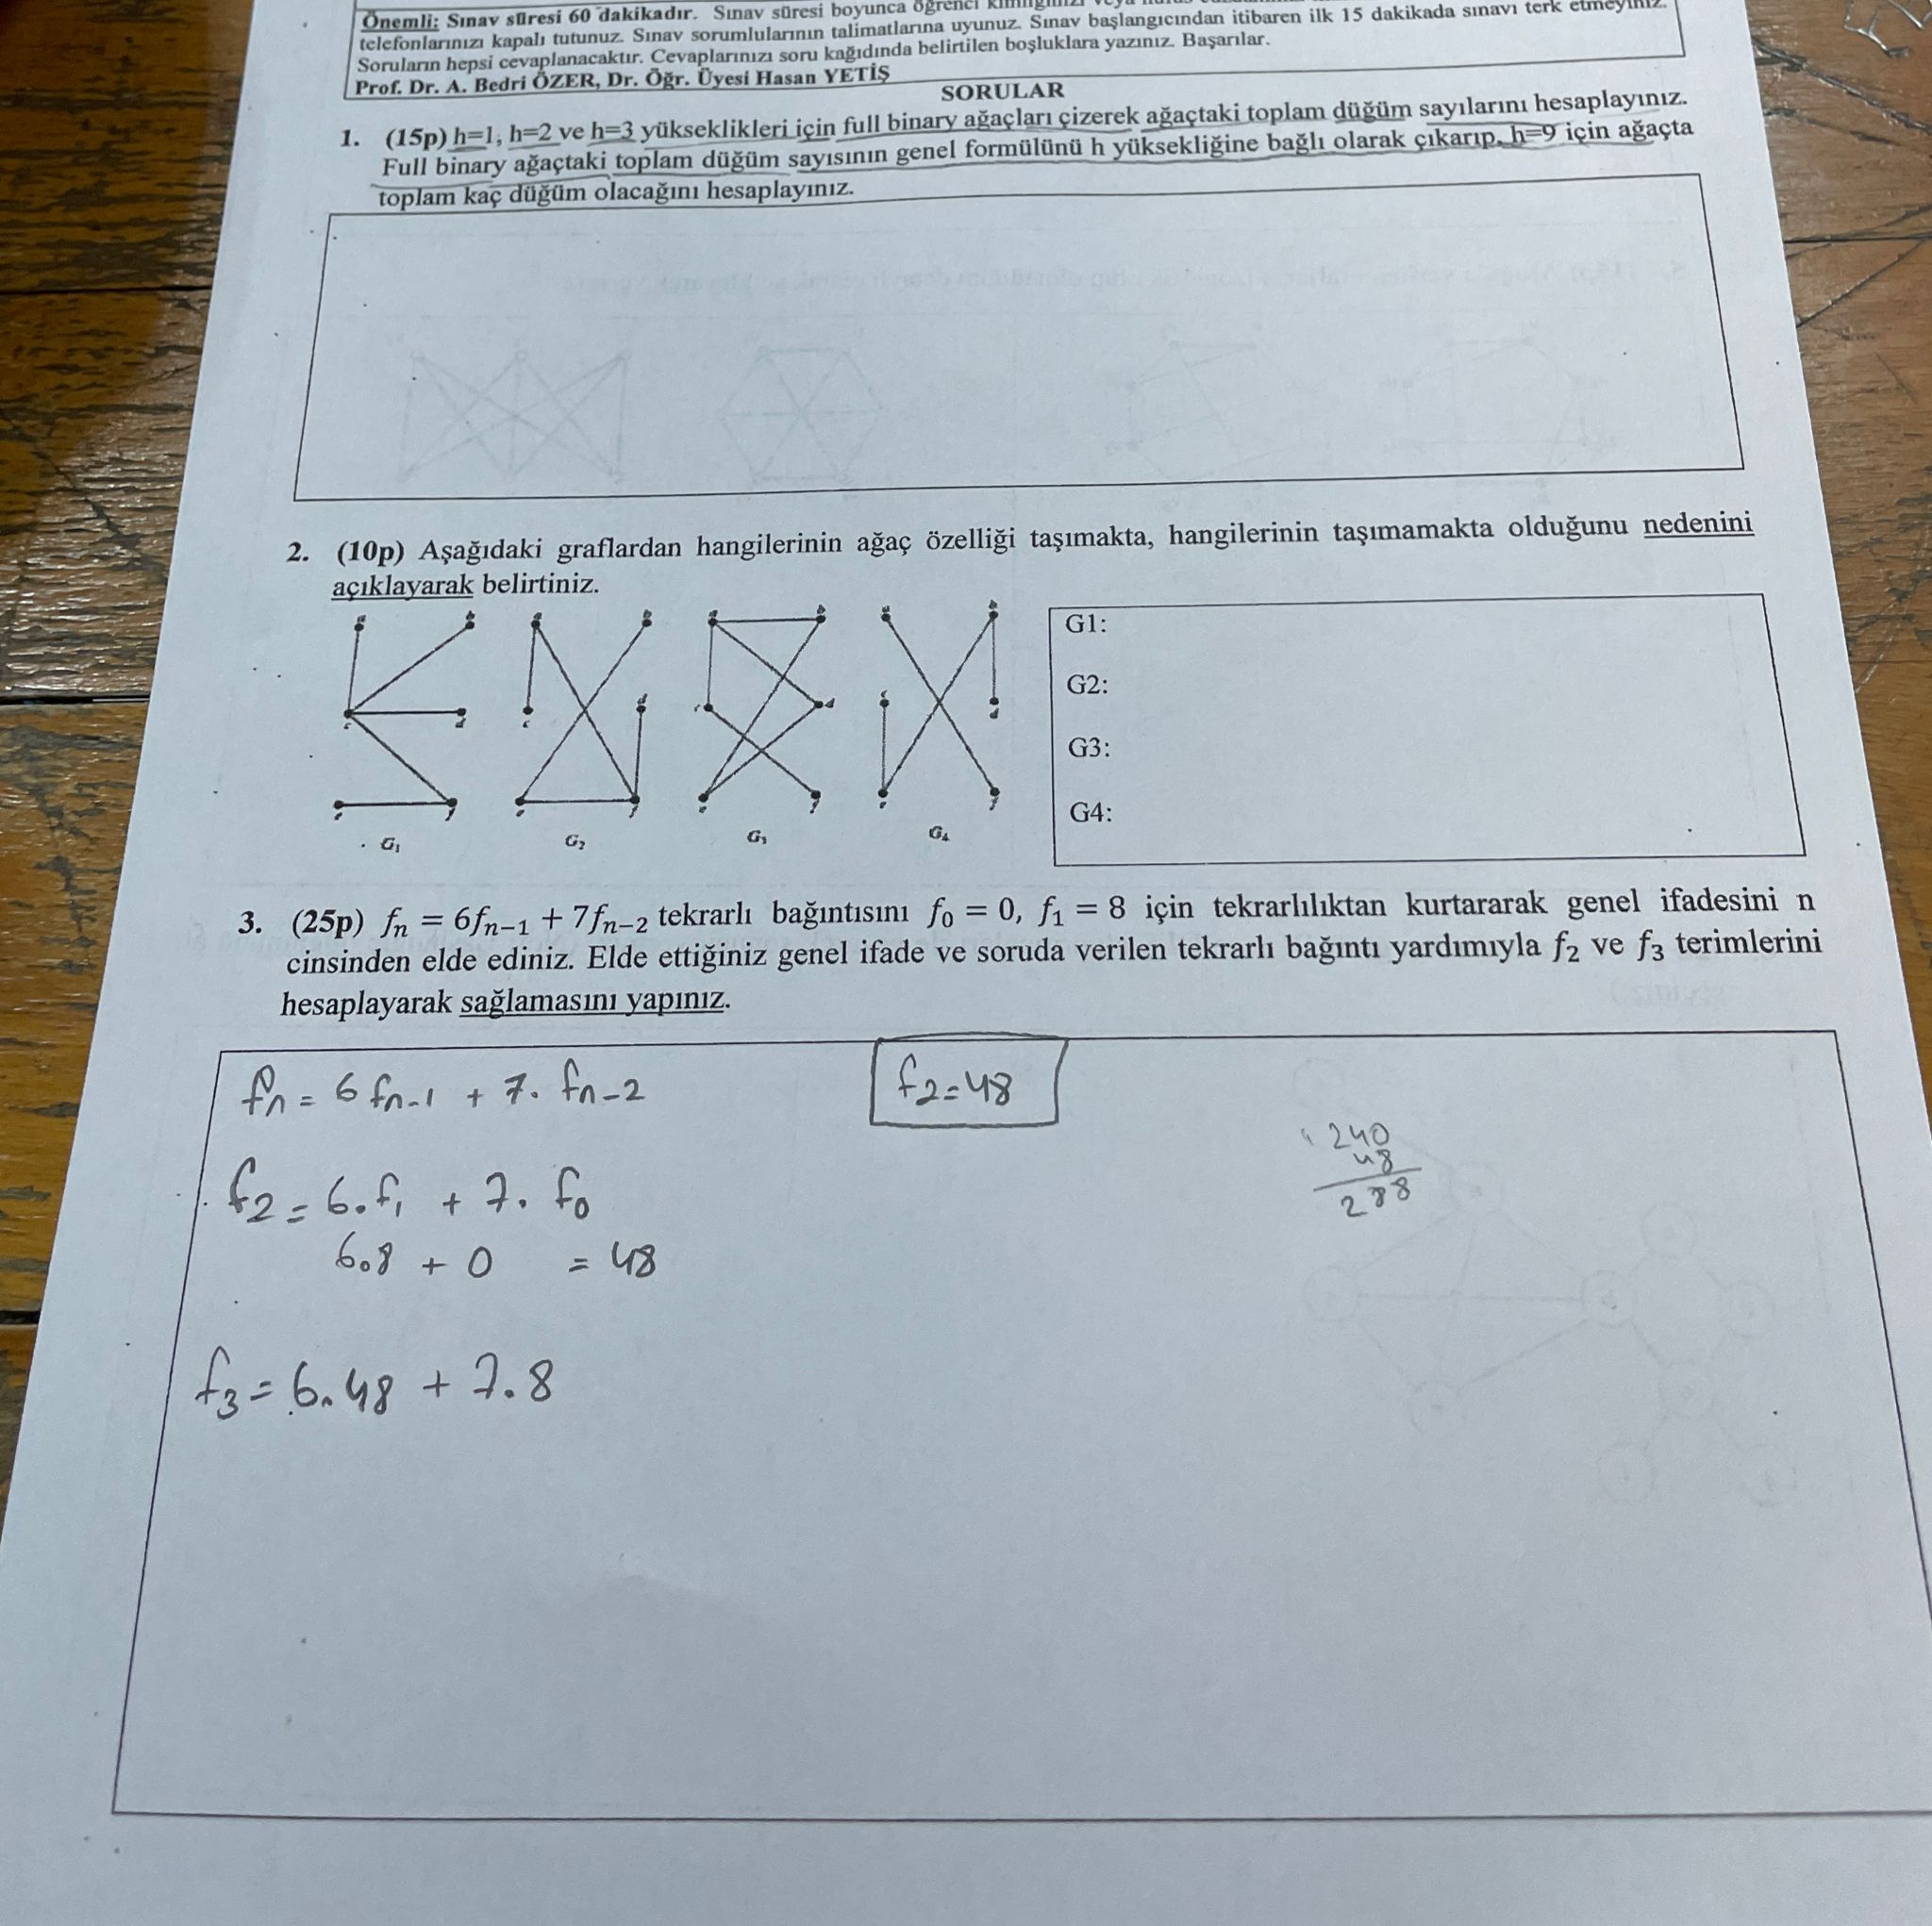 Önemli: Sınav süresi 60 dakikadır. Sınav süresi boyunca öğrenci
telefonlarınızı kapalı tutunuz. Sınav sorumlularının talimatlarına uyunuz. Sınav başlangıcından itibaren ilk 15 dakikada sınavı terk etmeyiniz.
Soruların hepsi cevaplanacaktır. Cevaplarınızı soru kağıdında belirtilen boşluklara yazınız. Başarılar.
Prof. Dr. A. Bedri ÖZER, Dr. Öğr. Üyesi Hasan YETİŞ
SORULAR
1. (15p) h=1, h=2 ve h=3 yükseklikleri için full binary ağaçları çizerek ağaçtaki toplam düğüm sayılarını hesaplayınız.
Full binary ağaçtaki toplam düğüm sayısının genel formülünü h yüksekliğine bağlı olarak çıkarıp, h=9 için ağaçta
toplam kaç düğüm olacağını hesaplayınız.
2. (10p) Aşağıdaki graflardan hangilerinin ağaç özelliği taşımakta, hangilerinin taşımamakta olduğunu nedenini
açıklayarak belirtiniz.
G1:
G2:
G3:
G4:
G₁ G₂ G₃ G₄
3. (25p) fₙ = 6fₙ₋₁ + 7fₙ₋₂ tekrarlı bağıntısını f₀ = 0, f₁ = 8 için tekrarlılıktan kurtararak genel ifadesini n
cinsinden elde ediniz. Elde ettiğiniz genel ifade ve soruda verilen tekrarlı bağıntı yardımıyla f₂ ve f₃ terimlerini
hesaplayarak sağlamasını yapınız.
fn = 6 fn-1 + 7. fn-2
f2=48
240
48
288
f2 = 6.f1 + 7. f0
6.8 + 0 = 48
f3 = 6.48 + 7.8